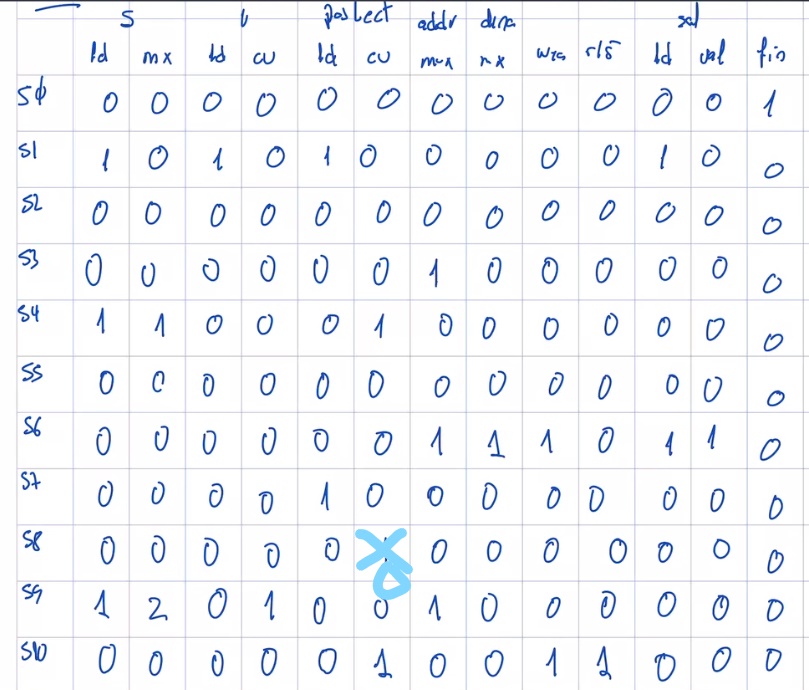 S addr sal
ld mx ld cu ld cu mux mx r/s ld val fin
Sϕ 0 0 0 0 0 0 0 0 0 0 0 0 1
S1 1 0 1 0 1 0 0 0 0 0 1 0 0
S2 0 0 0 0 0 0 0 0 0 0 0 0 0
S3 0 0 0 0 0 0 1 0 0 0 0 0 0
S4 1 1 0 0 0 1 0 0 0 0 0 0 0
S5 0 0 0 0 0 0 0 0 0 0 0 0 0
S6 0 0 0 0 0 0 1 1 1 0 1 1 0
S7 0 0 0 0 1 0 0 0 0 0 0 0 0
S8 0 0 0 0 0 0 0 0 0 0 0 0 0
S9 1 2 0 1 0 0 1 0 0 0 0 0 0
S10 0 0 0 0 0 1 0 0 1 1 0 0 0